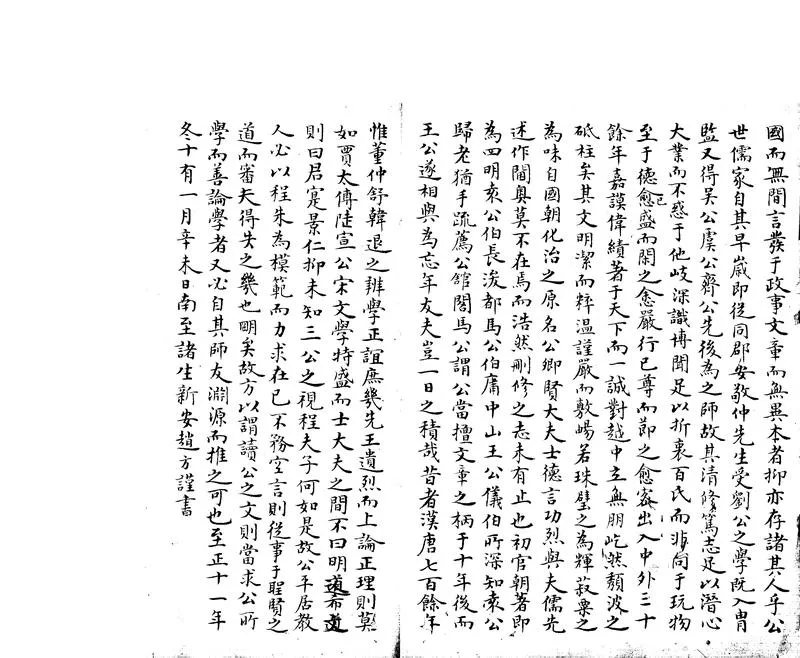 國而無間言發于政事文章而無異本者抑亦存諸其人乎公
世儒家自其早歲即從同郡安敬仲先生受劉公之學既入胄
監又得吴公虞公齊公先後為之師故其清修篤志足以潛心
大業而不惑于他歧深識博聞足以折衷百氏而非同于玩物
至于德愈盛而閑之愈嚴行已尊而節之愈密出入中外三十
餘年嘉謨偉績著于天下而一誠對越中立無朋屹然頹波之
砥柱矣其文明潔而粹温謹嚴而敷暢若珠璧之為輝菽粟之
為味自國朝化治之原名公卿賢大夫士德言功烈與夫儒先
述作閫奥莫不在焉而浩然刪修之志未有止也初官朝著即
為四明袁公伯長浚都馬公伯庸中山王公儀伯所深知袁公
歸老猶手疏薦公館閣馬公謂公當擅文章之柄于十年後而
王公遂相與為忘年友夫豈一日之積哉昔者漢唐七百餘年
惟董仲舒韓退之辨學正誼庶幾先王遺烈而上論正理則莫
如賈太傅陸宣公宋文學特盛而士大夫之間不曰明道希文
則曰君寔景仁抑未知三公之視程夫子何如是故公平居教
人必以程朱為模範而力求在己不務空言則從事于聖賢之
道而審夫得失之幾也明矣故方以謂讀公之文則當求公所
學而善論學者又必自其師友淵源而推之可也至正十一年
冬十有一月辛未日南至諸生新安趙方謹書